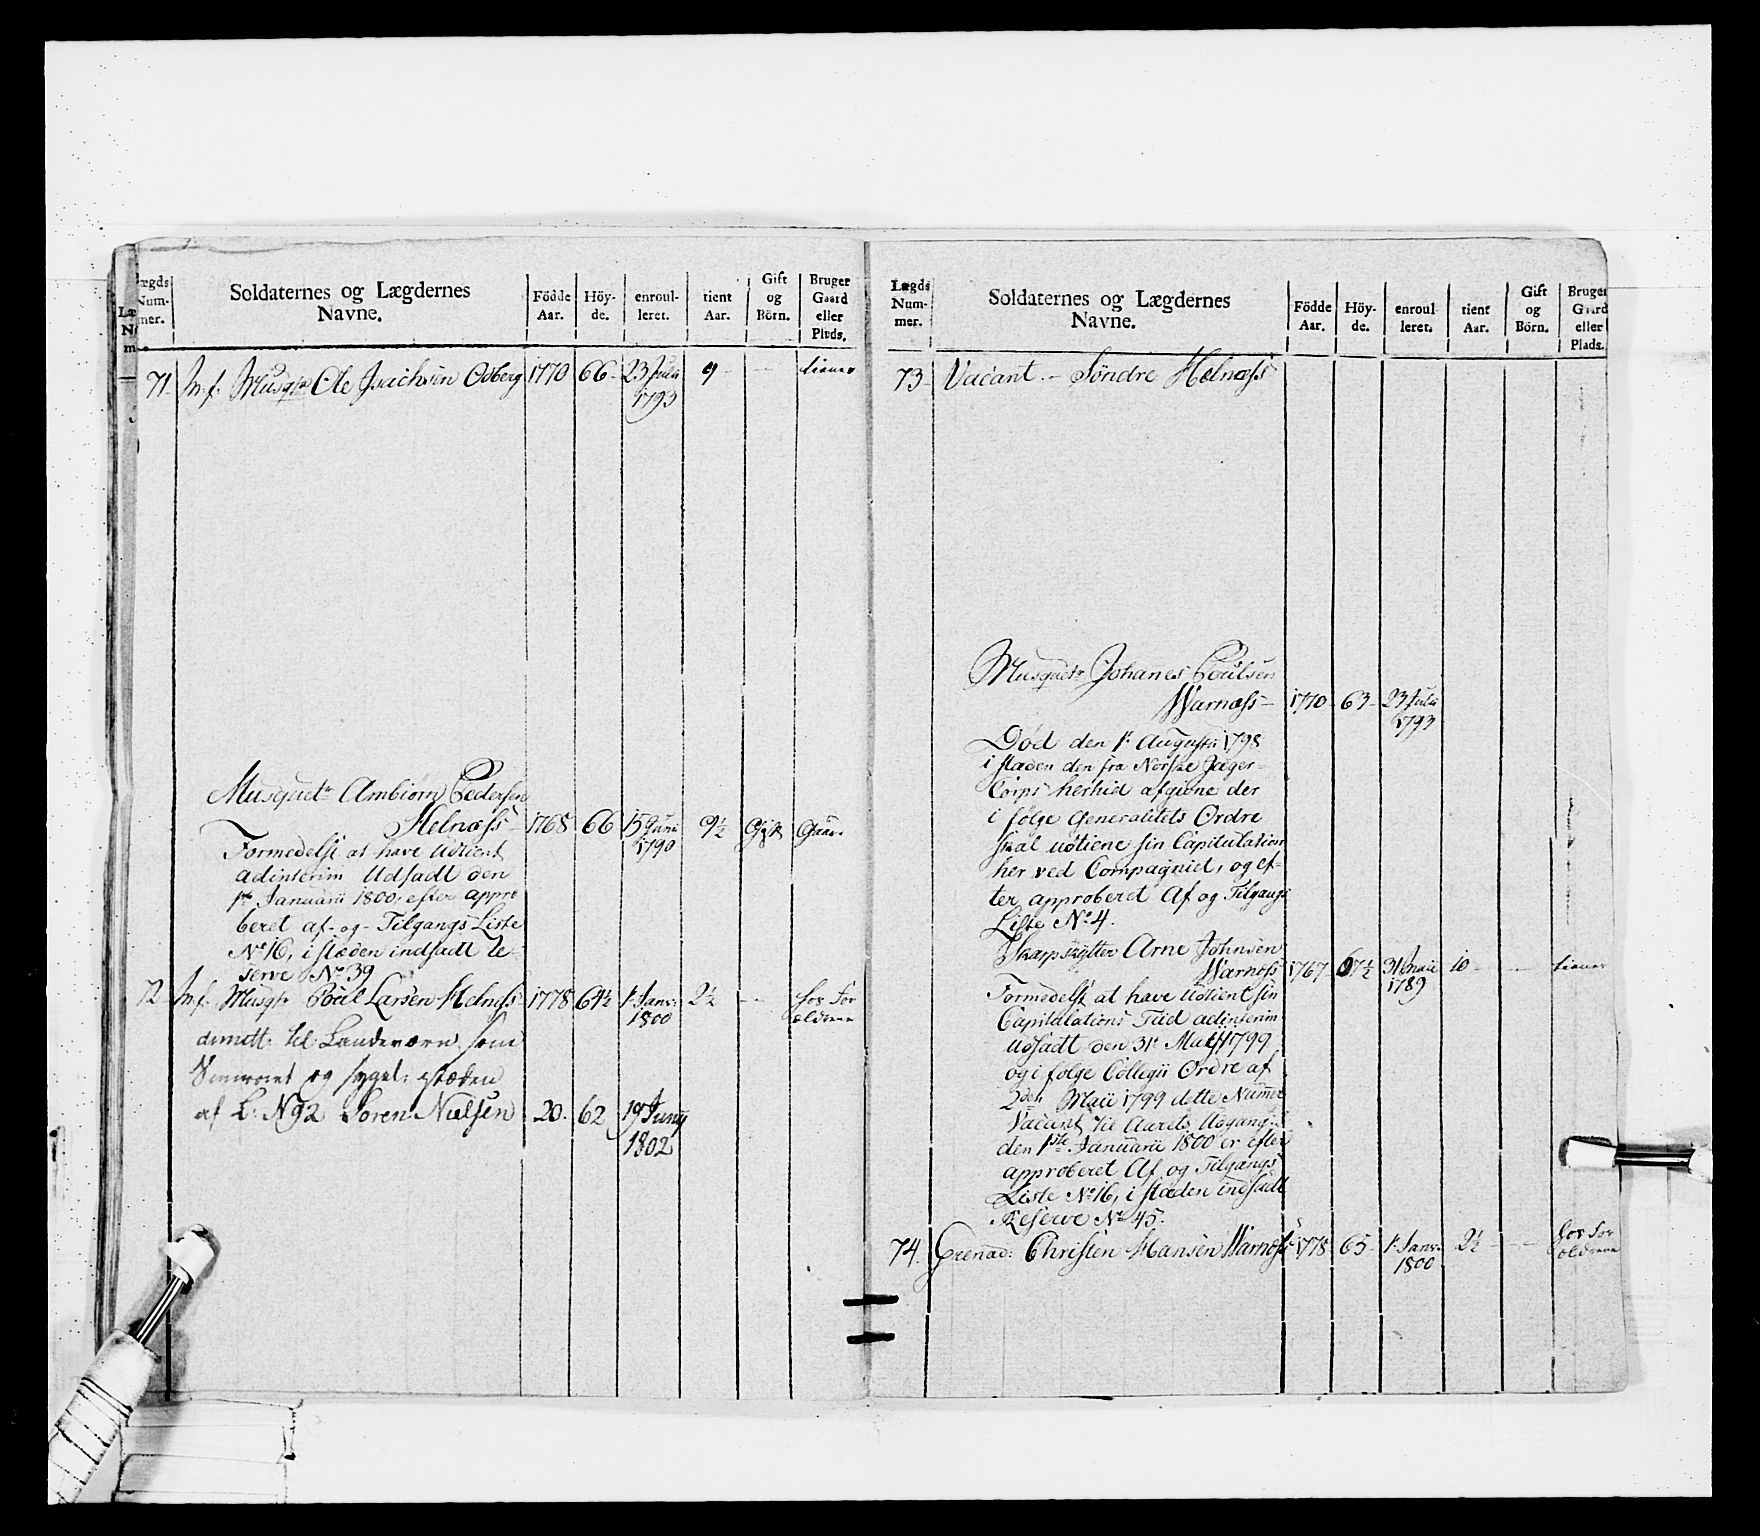 Lægds Num- mer.
Soldaternes og Lægdernes Navne.
Födde Aar.
Höy- de.
enroul- leret.
tient Aar.
Gift og Börn.
Bruger Gaard eller Plads.
71. Ole Isachsen Odberg 1770 66 23 Juli 1793 9 - tiener
Musquetr Ambiörn Pedersen
Helnæss 1765 66 15 Juni 1790 9½ Gift Gaard
Formedelst at have Udtient
adinterim Udsadt den
1ste Januarii 1800, efter appro
beret af- og Tilgangs Liste
No 16, i stæden indsadt Re-
serve No 39
72 Musqr Poul Larsen Helnæss 1778 64½ 1 Janr: 1800 2½ - hos For ældrene
til Landeværn som
og
af L: N 92 Soren Nielsen 20. 62 Juny 1802
Lægds Num- mer.
Soldaternes og Lægdernes Navne.
Födde Aar.
Höy- de.
enroul- leret.
tient Aar.
Gift og Börn.
Bruger Gaard eller Plads.
73 Vacant. - Söndre Helnæss
Musquetr Johanes Poulsen
Warnæss 1770 63 23 Julii 1793
Död den 1t Augusti 1798
i stæden den fra Norske Jæger-
Corps herhid afgivne der
i fölge Generalitets Ordre
skal udtiene sin Capitulation
her ved Compagniet, og ef-
ter approberet Af og Tilgangs
Liste No 4.
Skarpskytter Arne Johnsen
Warnæss 1767 67½ 31 Maii 1789 10 - tiener
Formedelst at have Udtient sin
Capitulations Tiid adinterim
udsadt den 31t Maii 1799
og i folge Collegii Ordre af
2den Maii 1799 dette Numer
Vacant til Aarets Udgang:
den 1ste Januarii 1800 er efter
approberet Af og Tilgangs
Liste No 16, i stæden indsadt
Reserve No 45.
74. Grenad: Christen Hansen Warnæss 1778 65 1 Janr: 1800 2½ - hos For ældrene